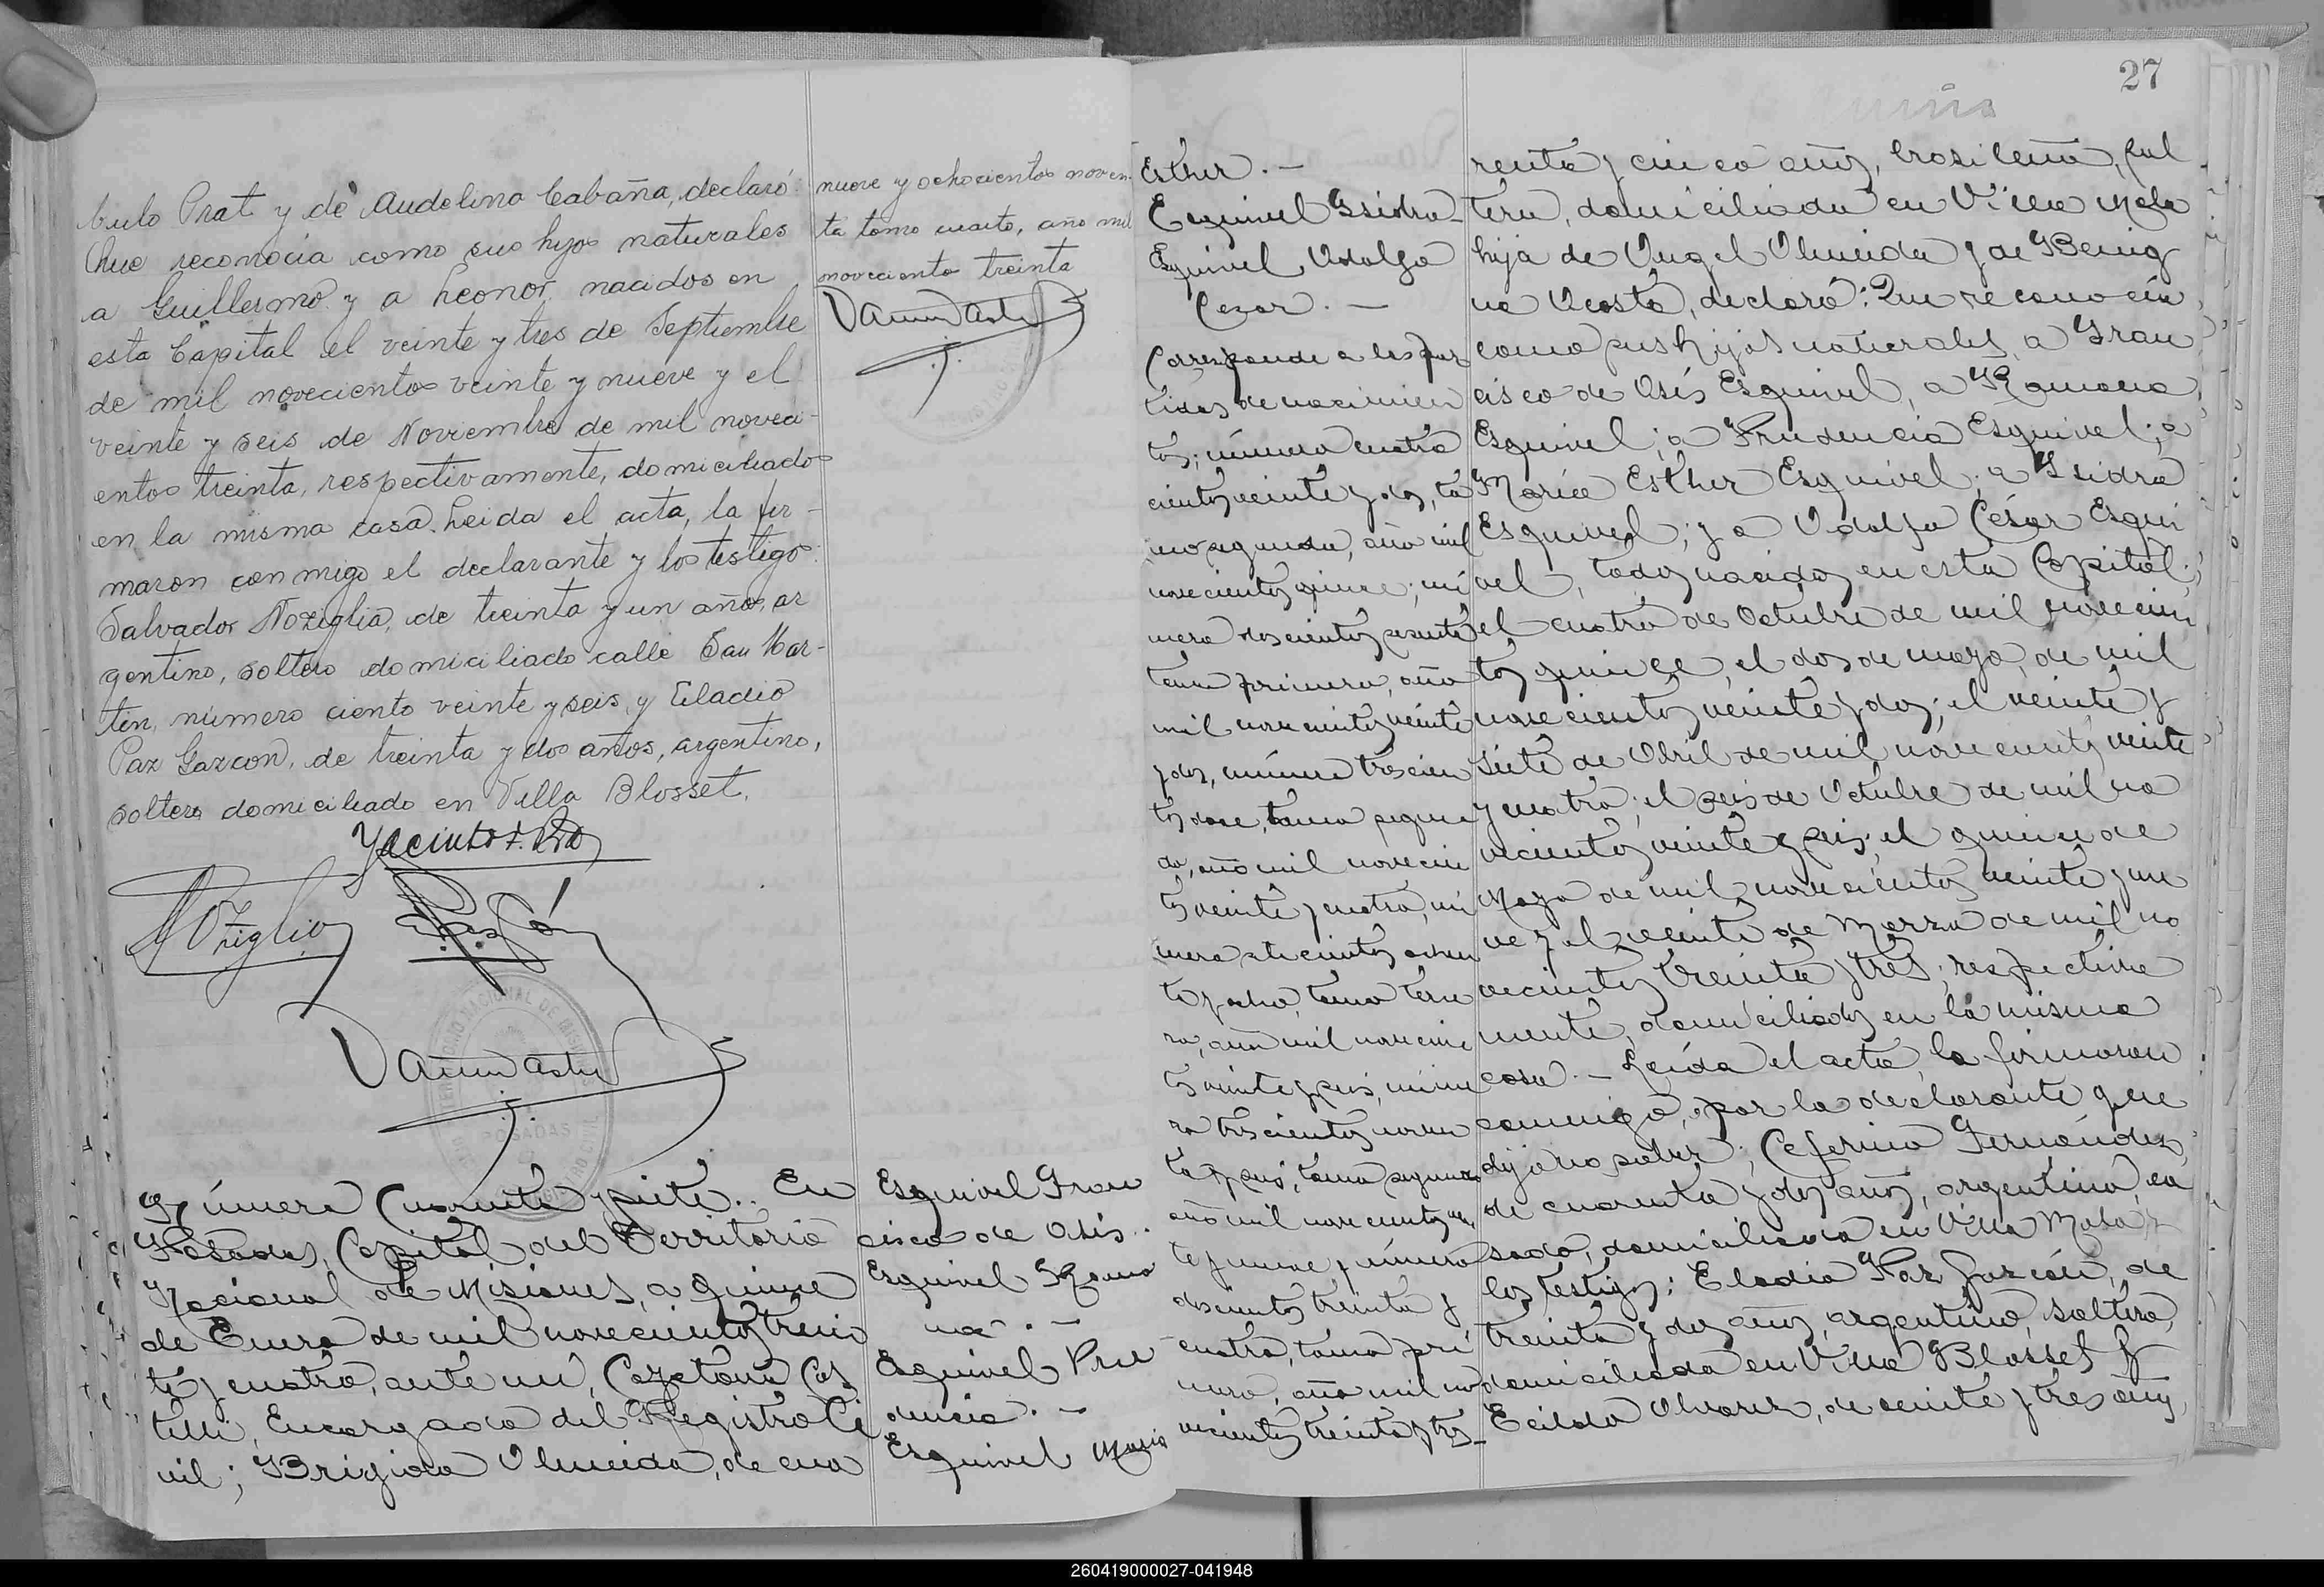 bulo Prat y de Audelina Cabaña, declaró:
Que reconocía como sus hijos naturales
a Guillermo y a Leonor, nacidos en
esta Capital el veinte y tres de Septiembre
de mil novecientos veinte y nueve y el
veinte y seis de Noviembre de mil noveci-
entos treinta, respectivamente, domiciliados
en la misma casa. Leida el acta, la fir-
maron conmigo el declarante y los testigos:
Salvador Noziglia, de treinta y un años, ar
gentino, soltero domiciliado calle San Mar-
tin, número ciento veinte y seis, y Eladio
Paz Garzon, de treinta y dos años, argentino,
soltero domiciliado en Villa Blosset.
nueve y ochocientos noven-
ta tomo cuarto, año mil
novecientos treinta
Número Cuarenta y siete.. En
Posadas, Capital del Territorio
Nacional de Misiones, a quince
de Enero de mil novecientos trein
ta y cuatro, ante mi, Cayetano Cas
telli, Encargado del Registro Ci
vil; Brigida Olmeida, de cua
Esquivel Fran
cisco de Asis..
Esquivel Ramo
na.-
Esquivel Pru
dencia.-
Esquivel Maria
27
Esther.-
Esquivel Isidra-
Esquivel Adolfo
Cezar.-
Corresponde a las par
tidas de nacimien
tos; número cuatro
cientos veinte y dos, to
mo segundo, año mil
novecientos quince; nú
mero doscientos sesenta
tomo primero, año
mil novecientos veinte
y dos, número trescien
tos doce, tomo segun
do, año mil novecien
tos veinte y cuatro, nú
mero setecientos ochen
ta y ocho, tomo terce
ro, año mil novecien
tos veinte y seis, núme
ro trescientos noven
ta y seis, tomo segundo
año mil novecientos vein
te y nueve y número
doscientos treinta y
cuatro, tomo pri
mero, año mil no
vecientos treinta y tres-
renta y cinco años, brasileña, sol
tera, domiciliada en Villa Mola
hija de Angel Olmeida y de Benig
na Acosta, declaró: Que reconocía
como sus hijos naturales, a Fran
cisco de Asís Esquivel, a Ramona
Esquivel; a Prudencia Esquivel; a
María Esther Esquivel; a Isidra
Esquivel; y a Adolfo César Esqui
vel, todos nacidos en esta Capital;
el cuatro de Octubre de mil novecien
tos quince, el dos de mayo, de mil
novecientos veinte y dos; el veinte y
siete de Abril de mil novecientos veinte
y cuatro; el seis de Octubre de mil no
vecientos veinte y seis; el quince de
Mayo de mil novecientos veinte y nue
ve y el veinte de Marzo de mil no
vecientos treinta y tres; respectiva
mente, domiciliados en la misma
casa.- Leída el acta, la firmaron
conmigo, por la declarante que
dijo no saber; Ceferino Fernández,
de cuarenta y dos años, argentino, ca
sado, domiciliado en Villa Mola, y
los testigos: Eladio Paz Garzón, de
treinta y dos años, argentino, soltero,
domiciliado en Villa Blosset y
Ecilda Alvarez, de veinte y tres años,
260419000027-041948